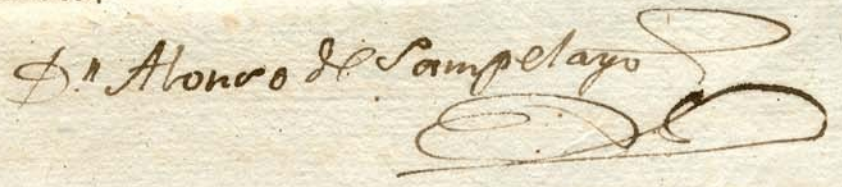 D.n Alonso de Sampelayo